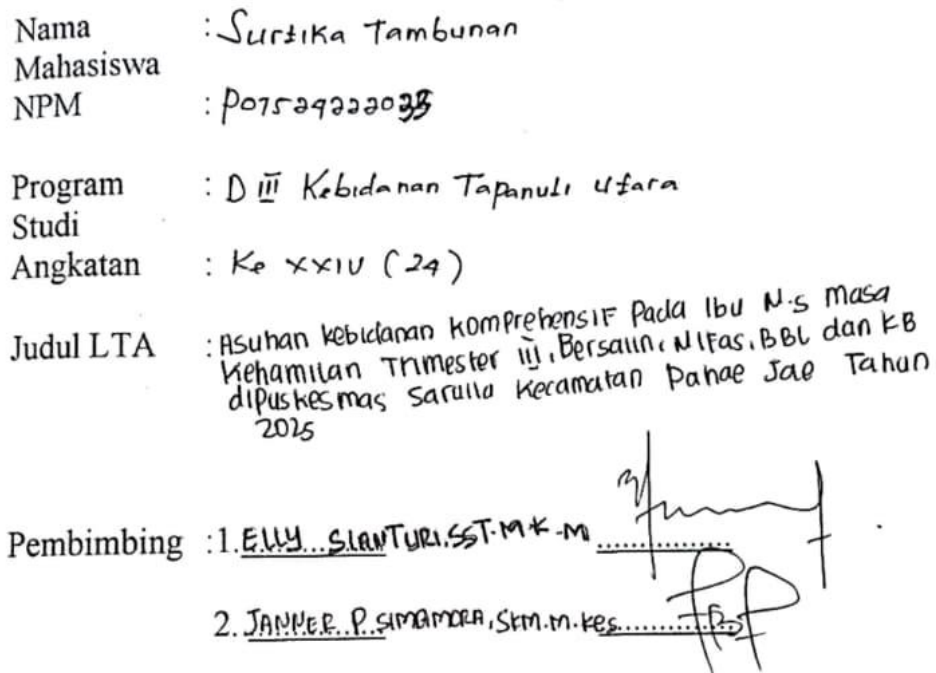 Nama : Surtika Tambunan
Mahasiswa
NPM : P07529222033
Program : D III Kebidanan Tapanuli Utara
Studi
Angkatan : Ke XXIV (24)
Judul LTA : Asuhan kebidanan Komprehensif Pada Ibu N.S Masa
Kehamilan Trimester III, Bersalin, Nifas, BBL dan KB
dipuskesmas Sarulla Kecamatan Pahae Jae Tahun
2025
Pembimbing : 1. ELLY SIANTURI.SST.M.K.M
2. JANNER P SIMAMORA, SKM.M.Kes